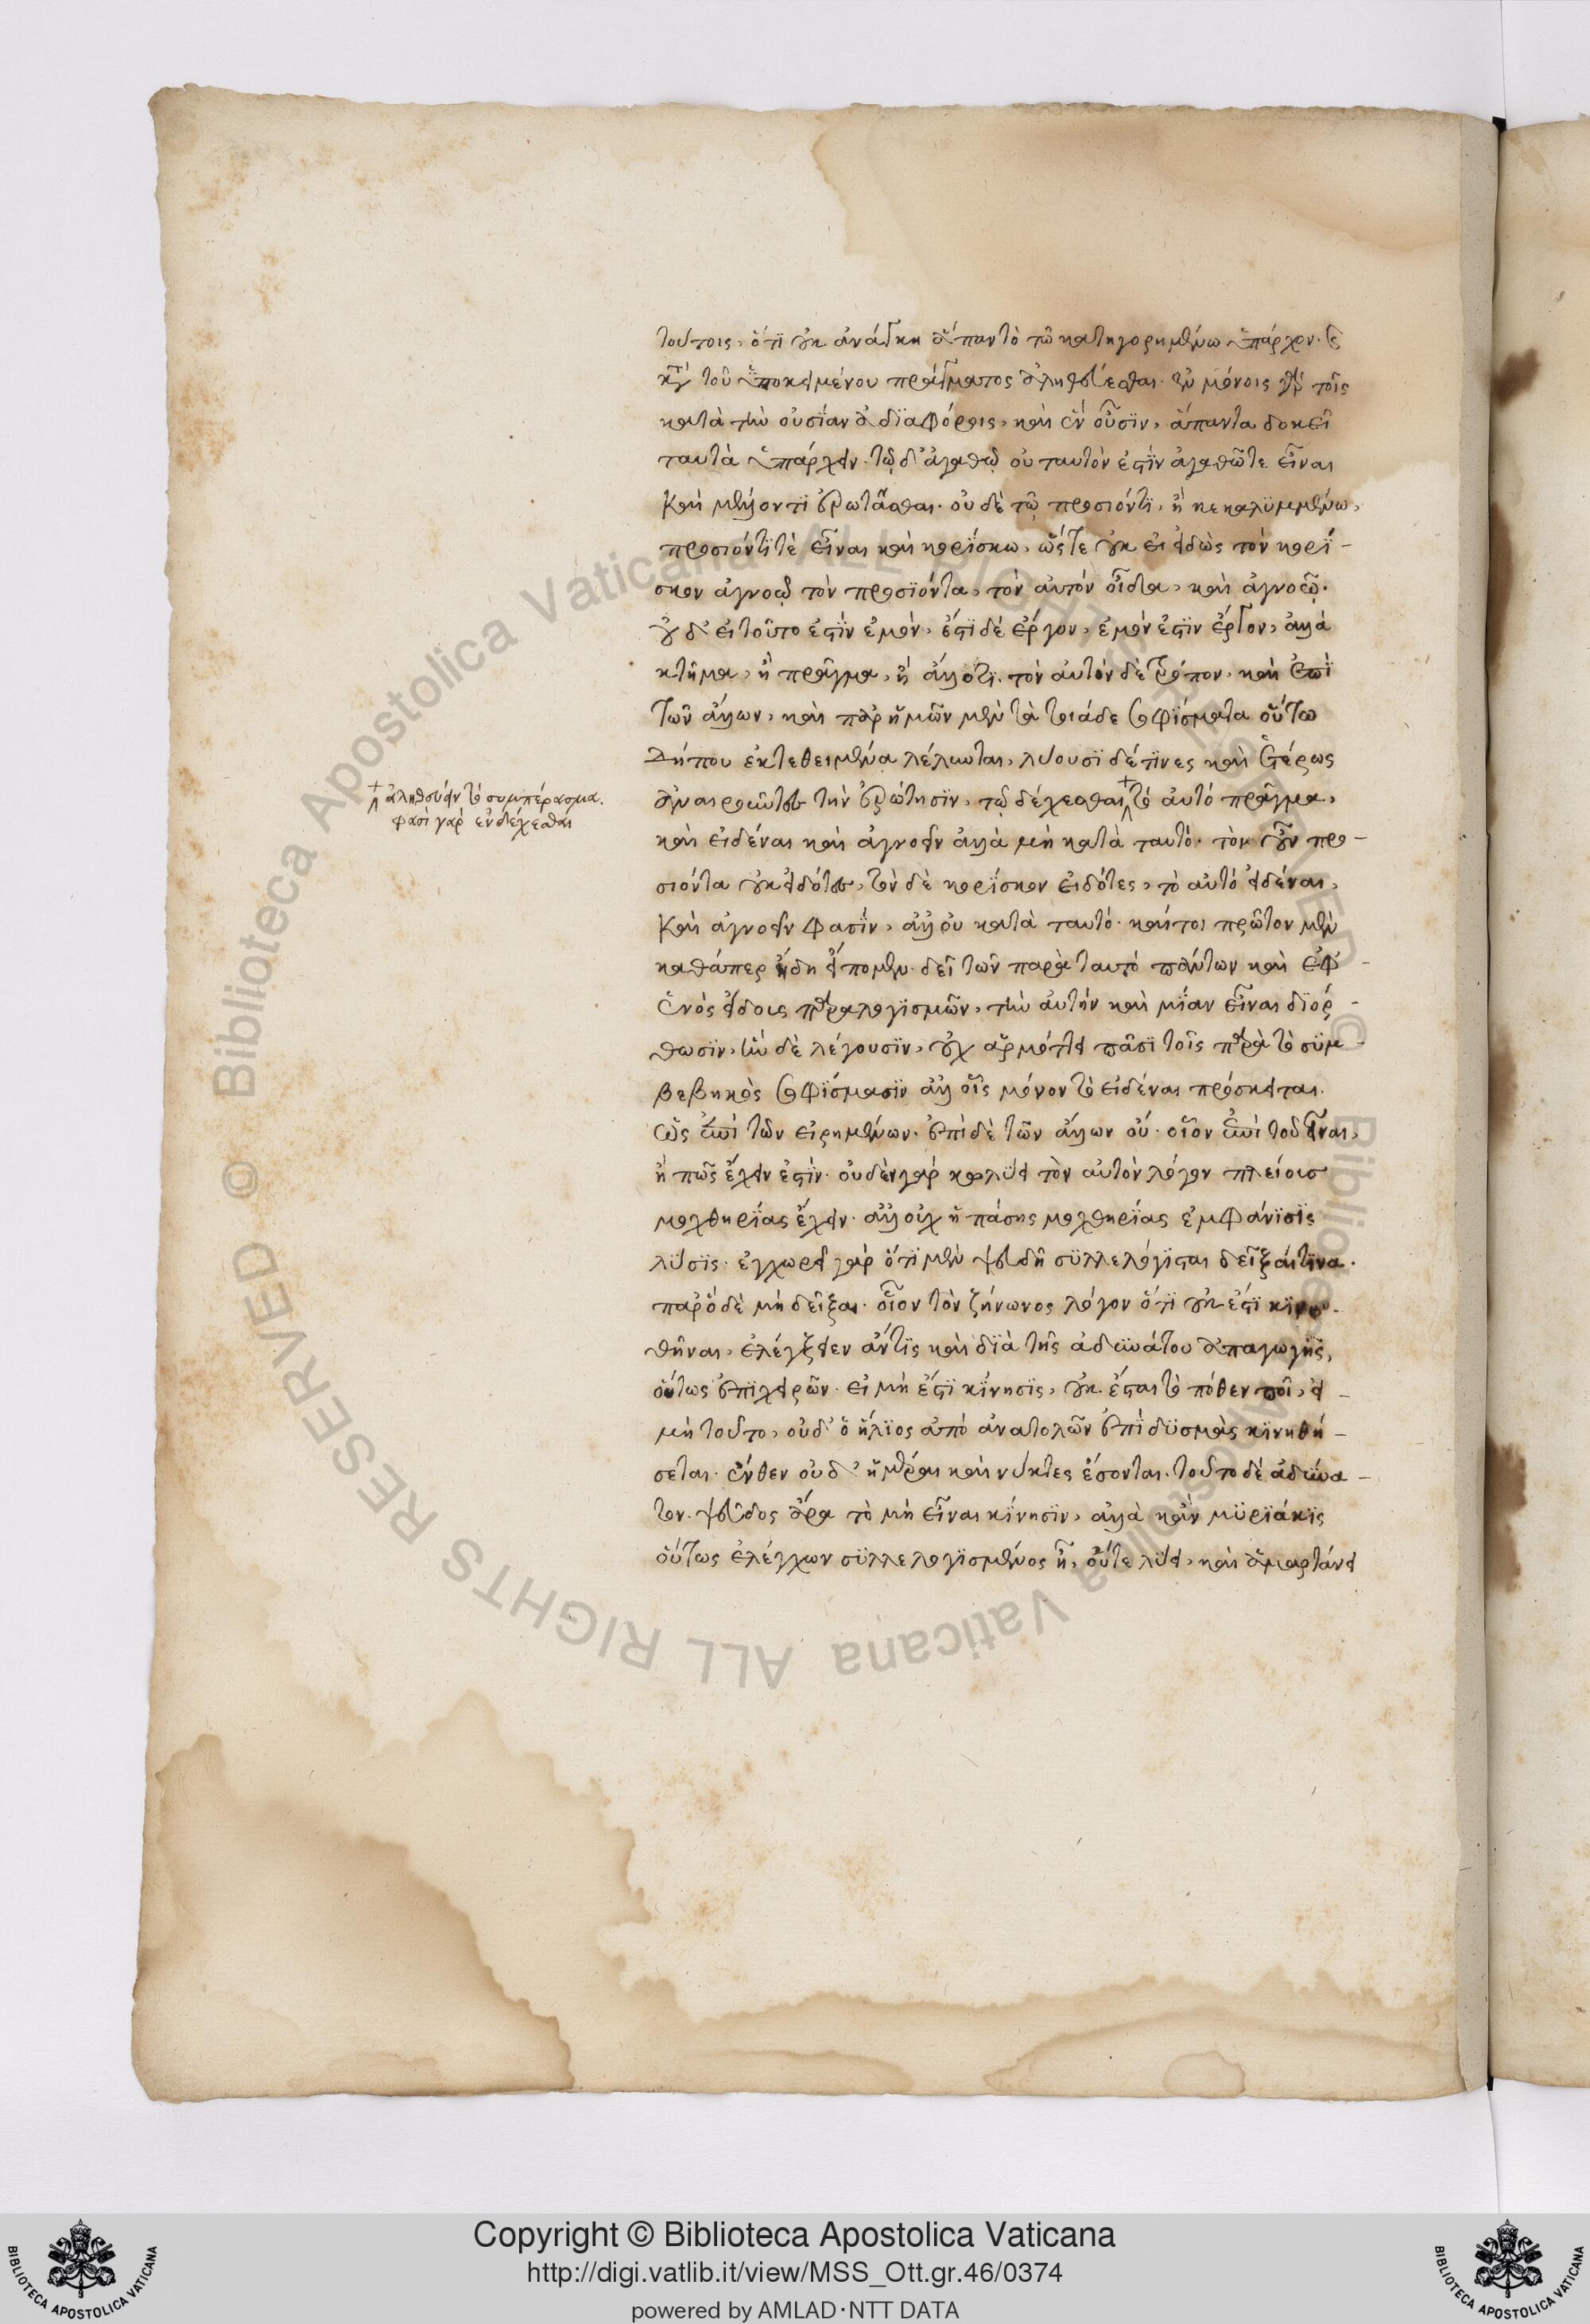 τούτοις, ὅτι οὐκ ἀνάγκη ἅπαν τὸ τῶ κατηγορημένω ὑπάρχον. καὶ
κατὰ τοῦ ὑποκειμένου πράγματος ἀληθεύεσθαι. ἐν μόνοις γὰρ τοῖς
κατὰ τὴν οὐσίαν ἀδιαφόροις, καὶ ἓν οὖσιν, ἅπαντα δοκεῖ
ταυτὰ ὑπάρχειν. τῷ δ' ἀγαθῷ οὐ ταυτόν ἐστὶν ἀγαθῶ τε εἶναι
καὶ μέλλοντι ἐρωτᾶσθαι. οὐδὲ τῷ προσιόντι, ἢ κεκαλυμμένω,
προσιόντι τὲ εἶναι καὶ κορίσκω, ὥστε οὐκ εἰ εἰδὼς τὸν κορί-
σκον ἀγνοῶ τὸν προσιόντα, τὸν αὐτόν οἶδα, καὶ ἀγνοῶ.
οὐδ' εἰ τοῦτο ἐστὶν ἐμόν, ἔστι δὲ ἔργον, ἐμόν ἐστιν ἔργον, ἀλλὰ
κτῆμα, ἢ πρᾶγμα, ἢ ἄλλο τι. τὸν αὐτὸν δὲ τρόπον, καὶ ἐπὶ
τῶν ἄλλων, καὶ παρ' ἡμῶν μὲν τὰ τοιάδε σοφίσματα οὕτω
δήπου ἐκτεθειμένα λέλυται, λύουσι δέ τινες καὶ ἑτέρως
ἀναιροῦντες τὴν ἐρώτησιν, τῷ δέχεσθαι τὸ αὐτό πρᾶγμα,
+ ἀληθεύειν τὸ συμπέρασμα.
φασὶ γὰρ ἐνδέχεσθαι
καὶ εἰδέναι καὶ ἀγνοεῖν ἀλλὰ μὴ κατὰ ταυτό. τὸν οὖν προ-
σιόντα οὐκ εἰδότες, τὸν δὲ κορίσκον εἰδότες, τὸ αὐτό εἰδέναι,
καὶ ἀγνοεῖν φασίν, ἀλλ' οὐ κατὰ ταυτό. καίτοι πρῶτον μὲν
καθάπερ ἤδη εἴπομεν. δεῖ τῶν παρὰ ταυτό πάντων καὶ ἐφ
ἑνὸς εἴδους παραλογισμῶν, τὴν αὐτήν καὶ μίαν εἶναι διόρ-
θωσιν, ἣν δὲ λέγουσιν, οὐχ ἁρμόττει πᾶσι τοῖς παρὰ τὸ συμ-
βεβηκὸς σοφίσμασιν ἀλλ' οἷς μόνον τὸ εἰδέναι πρόσκειται.
ὡς ἐπὶ τῶν εἰρημένων. ἐπὶ δὲ τῶν ἄλλων οὔ. οἷον ἐπὶ τοῦ εἶναι,
ἢ πῶς ἔχειν ἐστὶν. οὐδὲν γὰρ κωλύει τὸν αὐτὸν λόγον πλείους
μοχθηρίας ἔχειν. ἀλλ' οὐχ ἡ πάσης μοχθηρίας ἐμφάνισις
λύσις. ἐγχωρεῖ γὰρ ὅτι μὲν ψευδῆ συλλελόγισται δεῖξαί τινα.
παρ' ὃ δὲ μὴ δεῖξαι. οἷον τὸν ζήνωνος λόγον ὅτι οὐκ ἔστι κινη-
θῆναι, ἐλέγξειεν ἄν τις καὶ διὰ τῆς ἀδυνάτου ἀπαγωγῆς,
οὕτως ἐπιχειρῶν. εἰ μὴ ἔστι κίνησις, οὐκ ἔσται τὸ πόθεν ποῖ, εἰ
μὴ τοῦτο, οὐδ' ὁ ἥλιος ἀπὸ ἀνατολῶν ἐπὶ δυσμὰς κινηθή-
σεται. ἔνθεν οὐδ' ἡμέραι καὶ νύκτες ἔσονται. τοῦτο δὲ ἀδύνα-
τον. ψεῦδος ἄρα τὸ μὴ εἶναι κίνησιν, ἀλλὰ κἂν μυριάκις
οὕτως ἐλέγχων συλλελογισμένος ἦ, οὔτε λύει, καὶ ἁμαρτάνει
Copyright © Biblioteca Apostolica Vaticana
http://digi.vatlib.it/view/MSS_Ott.gr.46/0374
powered by AMLAD·NTT DATA